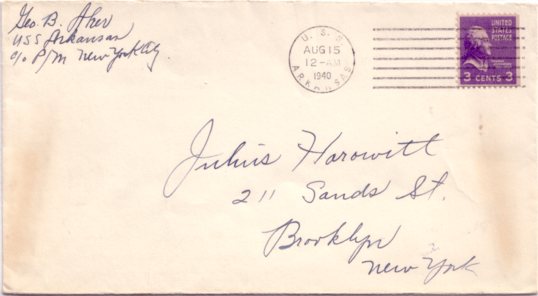 Geo. B. Aker
USS Arkansas
c/o P/M New York City
U. S. S.
AUG 15
12-AM
1940
ARKANSAS
UNITED
STATES
POSTAGE
3 CENTS 3
Julius Horowitt
211 Sands St.
Brooklyn
New York